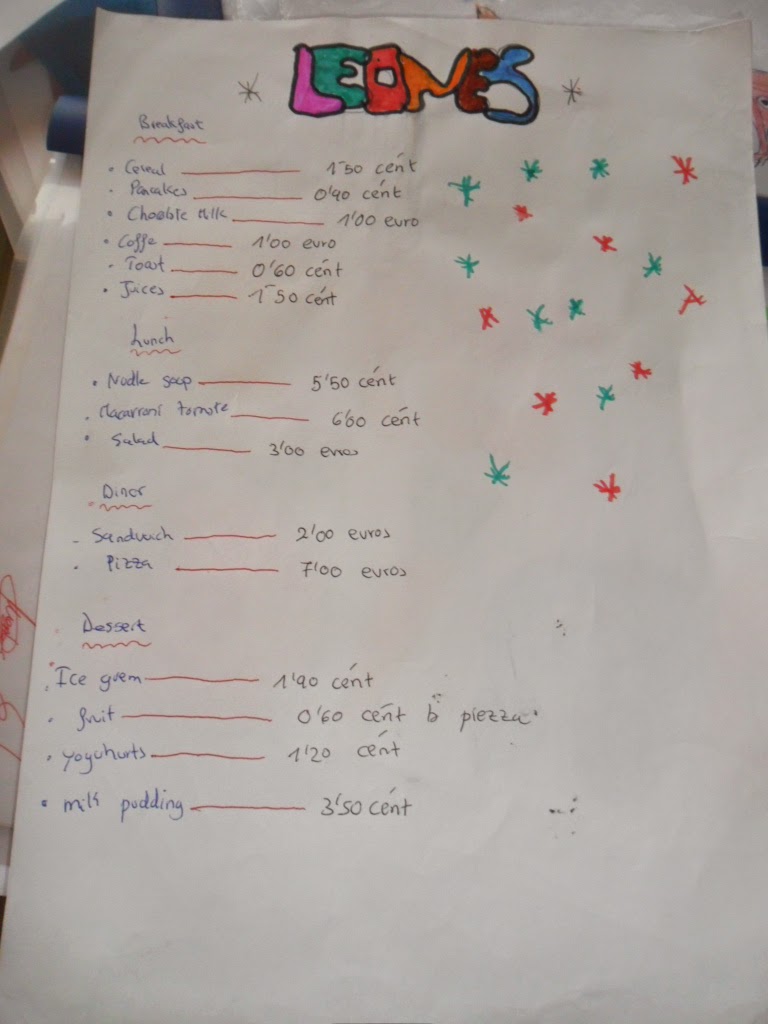 LEONES
Breakfast
Cereal 1'50 cént
Pancakes 0'90 cént
Chooble Milk 1'00 euro
Coffe 1'00 euro
Toast 0'60 cént
Juices 1'50 cént
Lunch
Nodle soap 5'50 cént
Macarroni tomote 6'60 cént
Salad 3'00 euros
Diner
Sandwich 2'00 euros
Pizza 7'00 euros
Dessert
Ice guem 1'90 cént
fruit 0'60 cént b piezza
yoguhurts 1'20 cént
milk pudding 3'50 cént